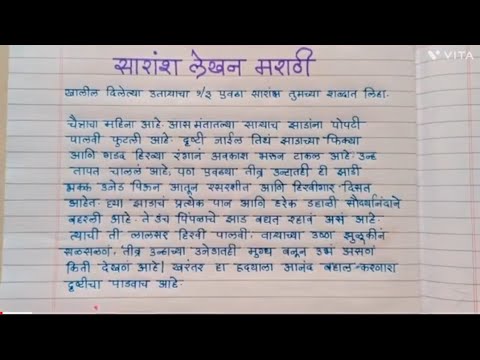 VITA
सारांश लेखन मराठी
खालील दिलेल्या उताऱ्याचा १/३ एवढा सारांश तुमच्या शब्दात लिहा.
चैत्राचा महिना आहे. आसमंतातल्या साऱ्याच झाडांना पोपटी
पालवी फुटली आहे. दृष्टी जाईल तिथं झाडाच्या फिक्या
आणि गडद हिरव्या रंगानं अवकाश भरून टाकलं आहे. उन्ह
तापत चाललं आहे, पण एवढ्या तीव्र उन्हातही ही झाडी
भक्क उजेड पिऊन आतून रसरशीत आणि हिरवीगार दिसत
आहेत. ह्या झाडाचं प्रत्येक पान आणि हरेक डहाळी सौंदर्यानंदाने
बहरली आहे. ते उंच पिंपळाचे झाड बघत रहावं असं आहे.
त्याची ती लालसर हिरवी पालवी, वाऱ्याच्या उष्ण झुळूकीनं
सळसळणं, तीव्र उन्हाच्या उजेडातही मुग्ध बनून उभं असणं
किती देखणं आहे! खरंतर हा हृदयाला आनंद बहाल करणारा
दृष्टीचा पाडवाच आहे.